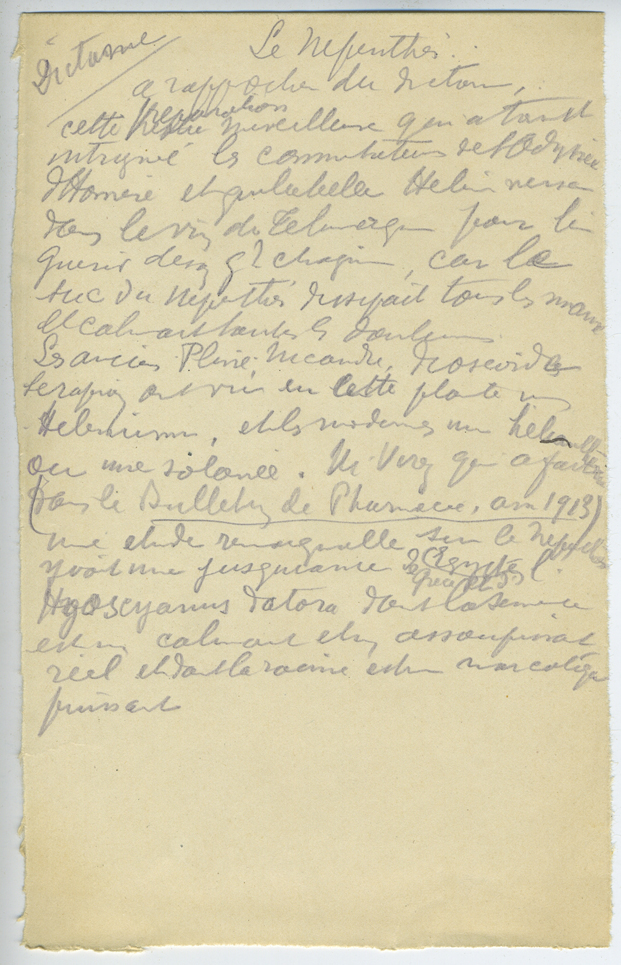 Dictame
Le Nepenthès.
a rapprocher du dictam,
cette préparation merveilleuse qui a tant
intrigué les commentateurs de l'Odyssée
d'Homère et que la belle Helène versa
dans le vin de Telemaque pour le
guerir de ses chagrins, car le
suc du Nepenthès dissipait tous les maux
et calmait toutes les douleurs.
Les anciens Pline Nicandre, Dioscoride
Serapion ont vu en cette plante un
Helenium, et les modernes un
ou une solanée. Mr Virey qui a fait
(dans le Bulletin de Pharmacie, an 1913)
une etude remarquable sur le Nepenthès
y voit une jusquiame d'Egypte
Hyoscyamus datora dont la semence
est un calmant et un assoupissant
réel et dont la racine est un narcotique
puissant